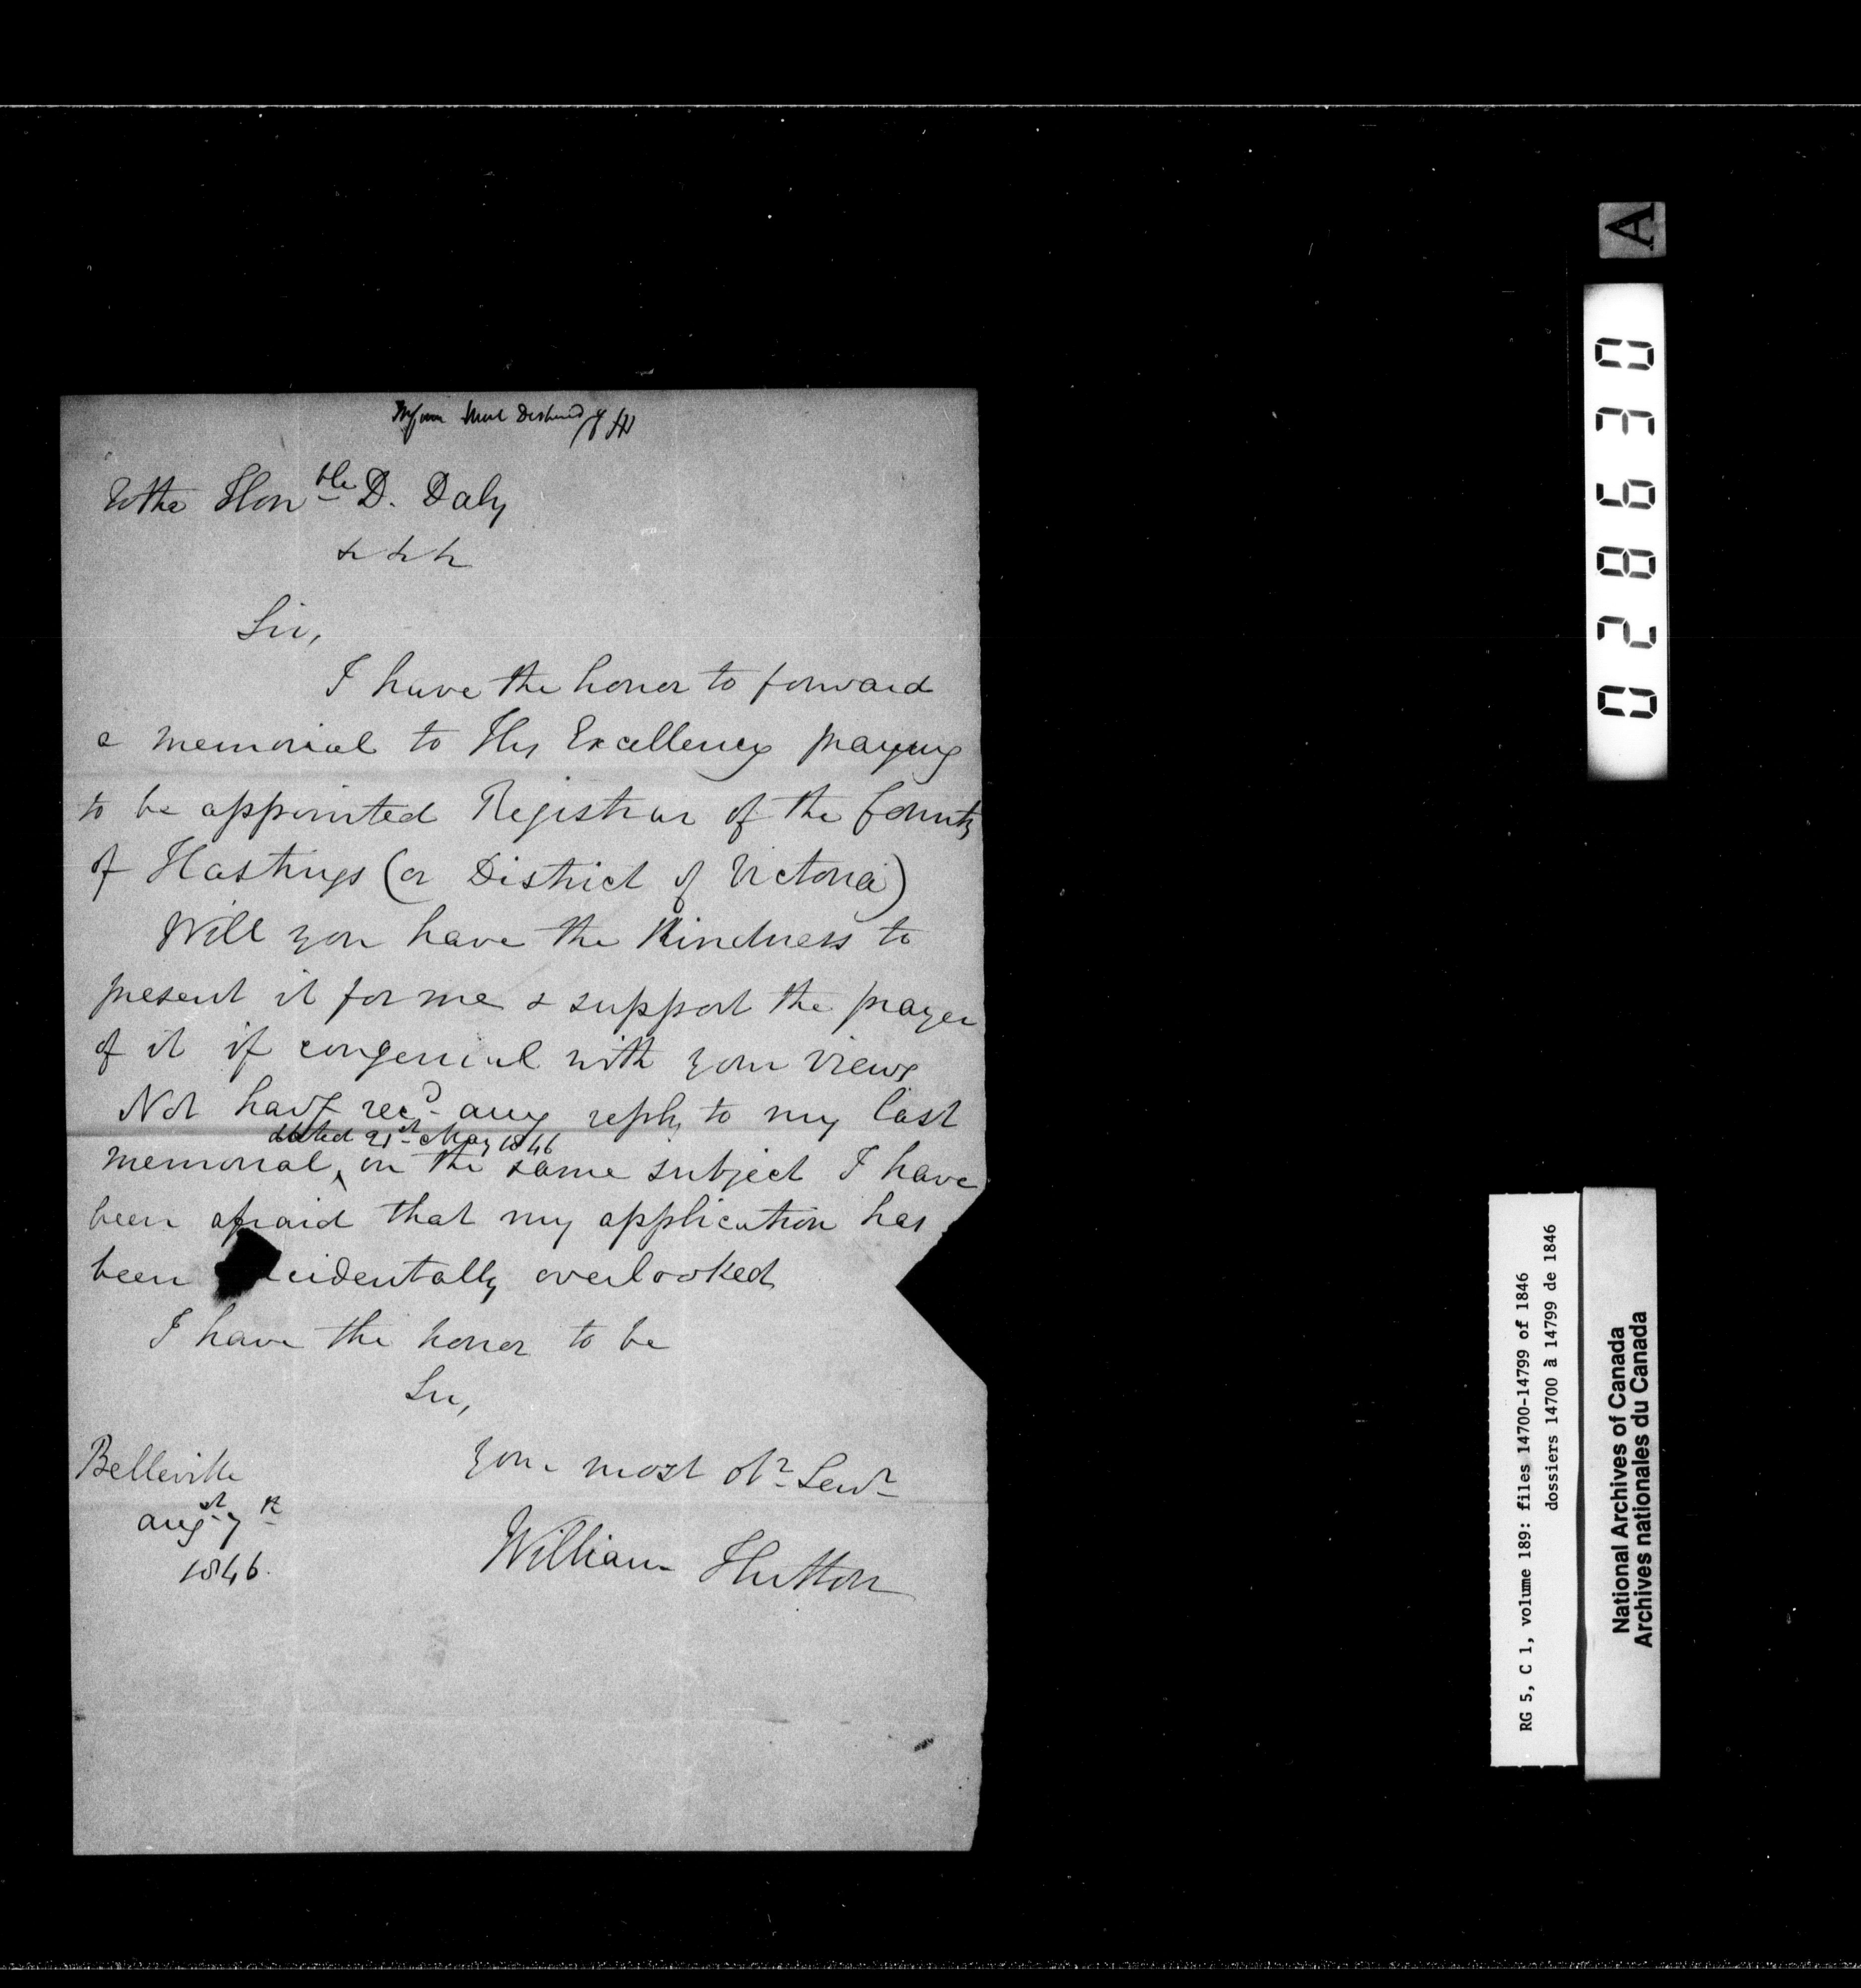 To the Hon^ble D. Daly
& & &
Sir,
I have the honor to forward
a memorial to His Excellency praying
to be appointed Registrar of the County
of Hastings (or District of Victoria)
Will you have the kindness to
present it for me & support the prayer
of it if congenial with your views
Not hav^g rec^d any reply to my last
dated 21^st May 1846
memorial, on the same subject I have
been afraid that my application has
been cidentally overlooked
I have the honor to be
Sir,
Your most ob^t Serv^t
William Hutton
Belleville
Aug^st 7^th
1846.
A
028630
RG 5, C 1, volume 189: files 14700-14799 of 1846
dossiers 14700 à 14799 de 1846
National Archives of Canada
Archives nationales du Canada